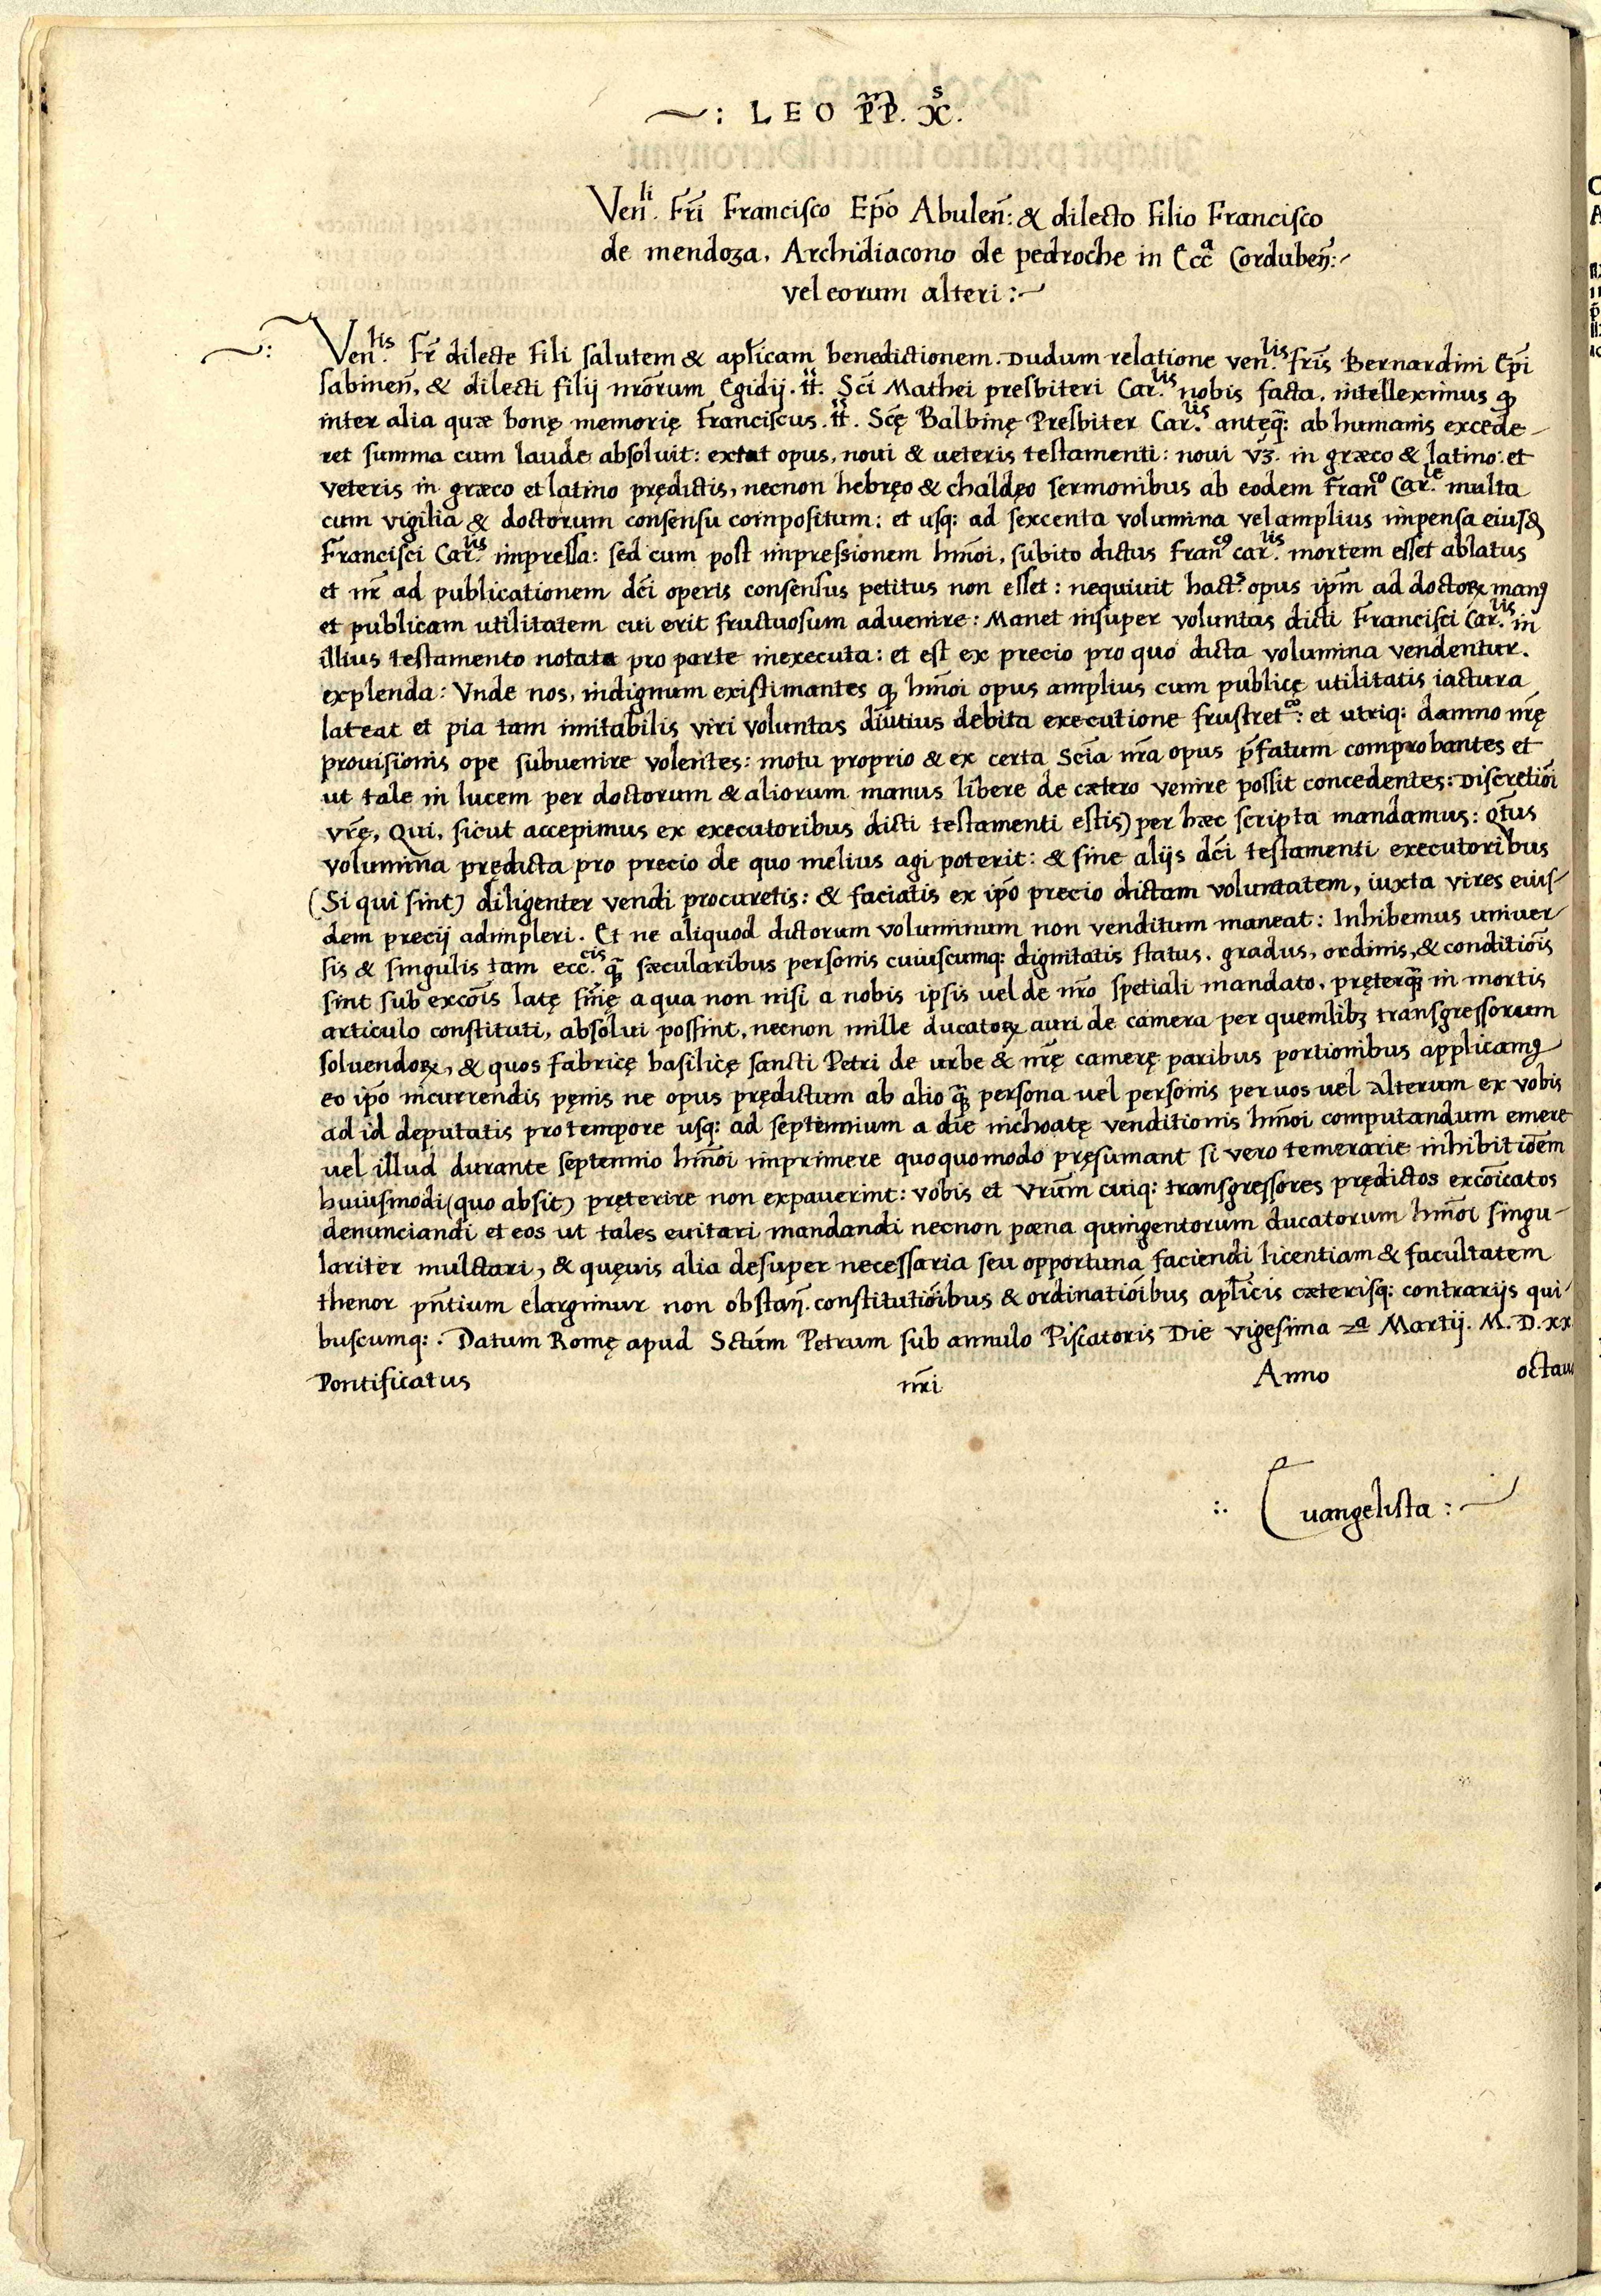 ~: LEO P̄P̄. X̊.
Ven^li. Fr̄i Francisco Ep̄o Abuleñ: & dilecto Filio Francisco
de mendoza, Archidiacono de pedroche in Ecc^a Cordubeñ:
vel eorum alteri:
~: Ven^lis. Fr̄ dilecte Fili salutem & aplicam benedictionem. Dudum relatione ven^lis. fr̄is Bernardini Ep̄i
sabineñ, & dilecti filij nr̄orum Egidij. tt̄. Sc̄i Mathei presbiteri Car^lis. nobis facta, intelleximus ꝙ
inter alia quæ bonę memorię Franciscus. tt̄. Scę Balbinę Presbiter Car^lis. anteq̄: ab humanis excede-
ret summa cum laude absoluit: extat opus, noui & ueteris testamenti: noui vꝫ. in græco & latino: et
veteris in græco et latino prędictis, necnon hebręo & chaldęo sermonibus ab eodem Fran^co Car^e. multa
cum vigilia & doctorum consensu compositum: et usq: ad sexcenta volumina vel amplius impensa eiusđ
Francisci Car^lis. impressa: sed cum post impressionem hm̄oi, subito dictus Fran^cꝰ car^lis. mortem esset ablatus
et nr̄ ad publicationem dc̄i operis consensus petitus non esset: nequiuit hact^s. opus ip̄m ad doctoꝝ manꝰ
et publicam utilitatem cui erit fructuosum aduenire: Manet insuper voluntas dicti Francisci Car^lis. in
illius testamento notata pro parte inexecuta: et est ex precio pro quo dicta volumina vendentur.
explenda: Vnde nos, indignum existimantes ꝙ hm̄oi opus amplius cum publicę utilitatis iactura
lateat et pia tam imitabilis viri voluntas diutius debita executione frustret^r: et utriq: damno nr̄ę
prouisionis ope subuenire volentes: motu proprio & ex certa Scīa nr̄a opus p̄fatum comprobantes et
ut tale in lucem per doctorum & aliorum manus libere de cætero venire possit concedentes: Discretiōi
vr̄ę, Qui, sicut accepimus ex executoribus dicti testamenti estis) per hæc scripta mandamus: qt̄us
volumina prędicta pro precio de quo melius agi poterit: & sine alijs dc̄i testamenti executoribus
(Si qui sint) diligenter vendi procuretis: & faciatis ex ip̄o precio dictam voluntatem, iuxta vires eius-
dem precij adimpleri. Et ne aliquod dictorum voluminum non venditum maneat: Inhibemus uniuer-
sis & singulis tam ecc^cis. q̄ sæcularibus personis cuiuscumq: dignitatis status. gradus, ordinis, & conditiōis
sint sub excōis latę sīnię a qua non nisi a nobis ipsis uel de nr̄o spetiali mandato, pręterq̄ in mortis
articulo constituti, absolui possint, necnon mille ducatoꝝ auri de camera per quemlibꝫ transgressorum
soluendoꝝ, & quos Fabricę basilicę sancti Petri de urbe & nr̄ę camerę paribus portionibus applicamꝰ
eo ip̄o incurrendis pęnis ne opus prędictum ab alio q̄ persona uel personis per uos uel alterum ex vobis
ad id deputatis pro tempore usq: ad septennium a die inchoatę venditionis hm̄oi computandum emere
uel illud durante septennio hm̄oi imprimere quoquomodo pręsumant si vero temerarie inhibitiōem
huiusmodi (quo absit) pręterire non expauerint: vobis et vr̄um cuiq: transgressores prędictos excōicatos
denunciandi et eos ut tales euitari mandandi necnon pæna quingentorum ducatorum hm̄oi singu-
lariter mulctari, & quęuis alia desuper necessaria seu opportuna faciendi licentiam & facultatem
thenor pn̄tium elargimur non obstañ. constitutiōibus & ordinatiōibus aplicis cæterisq: contrarijs qui-
buscumq:. Datum Romę apud Sctūm Petrum sub annulo Piscatoris Die vigesima 2a Martij. M. D. xx
Pontificatus nr̄i Anno octau
:. Euangelista: